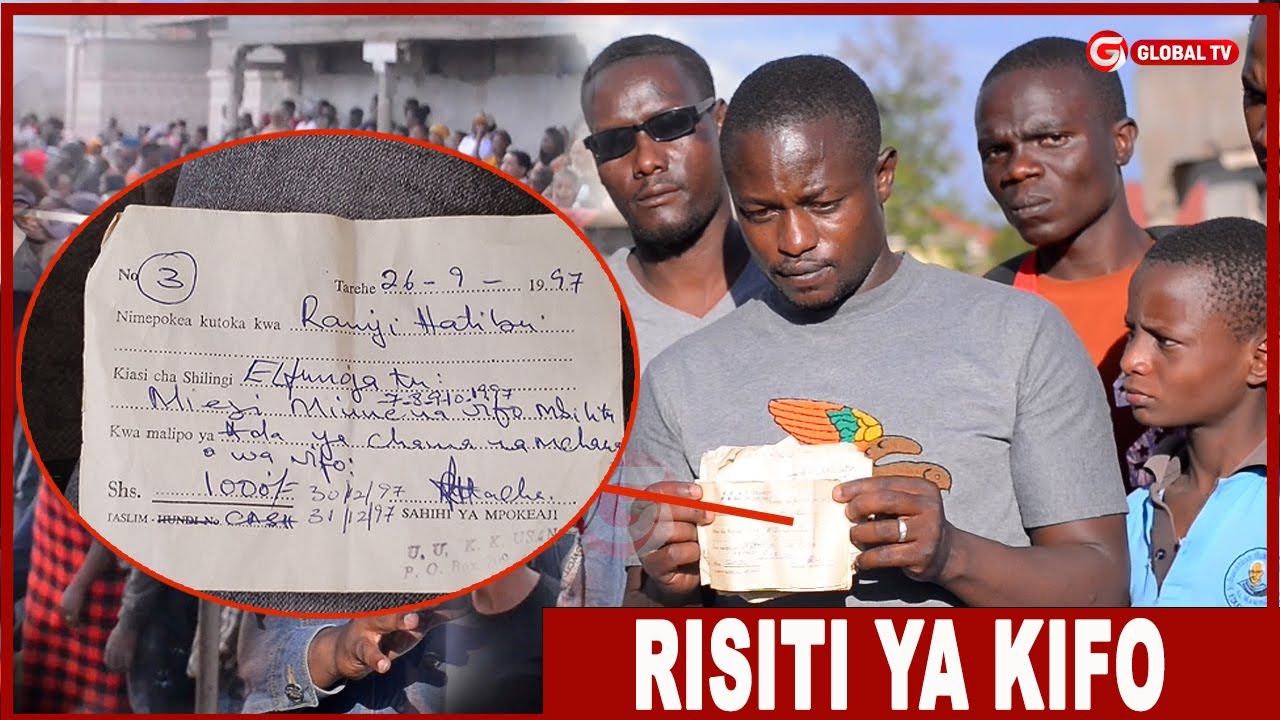 GLOBAL TV
No 3
Tarehe 26 - 9 - 1997
Nimepokea kutoka kwa Ramji Hatibu
Kiasi cha Shilingi Elfu moja tu:
7 8 9 10 1997
Miezi Minne na vifo
Kwa malipo ya Ada ya Chama na
wa vifo:
Shs. 1000/= 30/12/97
TASLIM - HUNDI No. CASH 31/12/97 SAHIHI YA MPOKEAJI
U. U. K. K.
P. O. Box
RISITI YA KIFO